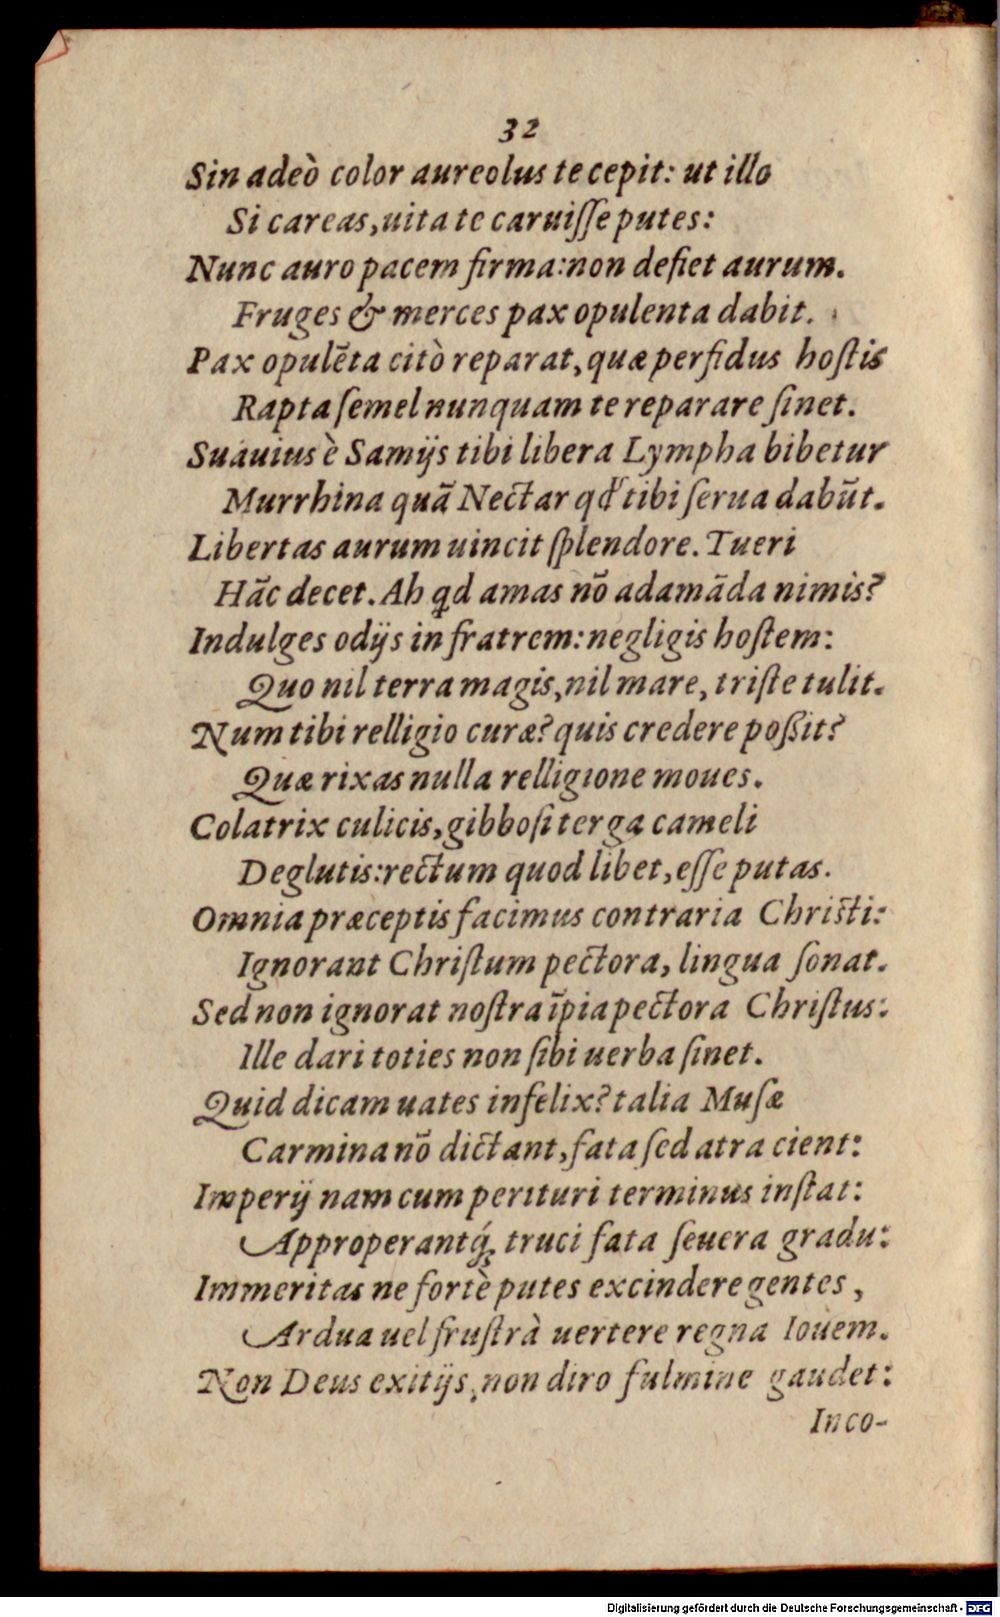 32
Sin adeò color aureolus te cepit: ut illo
Si careas, uita te caruiſſe putes:
Nunc auro pacem firma: non defiet aurum.
Fruges & merces pax opulenta dabit.
Pax opulēta citò reparat, quæ perfidus hoſtis
Rapta ſemel nunquam te reparare ſinet.
Suauius è Samijs tibi libera Lympha bibetur
Murrhina quā Nectar qđ tibi ſerua dabūt.
Libertas aurum uincit ſplendore. Tueri
Hāc decet. Ah qd amas nō adamāda nimis?
Indulges odijs in fratrem: negligis hoſtem:
Quo nil terra magis, nil mare, triſte tulit.
Num tibi relligio curæ? quis credere poßit?
Quæ rixas nulla relligione moues.
Colatrix culicis, gibboſi terga cameli
Deglutis: rectum quod libet, eſſe putas.
Omnia præceptis facimus contraria Chriſti:
Ignorant Chriſtum pectora, lingua ſonat.
Sed non ignorat noſtra īpia pectora Chriſtus:
Ille dari toties non ſibi uerba ſinet.
Quid dicam uates infelix? talia Muſæ
Carmina nō dictant, fata ſed atra cient:
Imperij nam cum perituri terminus inſtat:
Approperantq́; truci fata ſeuera gradu:
Immeritas ne fortè putes excindere gentes,
Ardua uel fruſtrà uertere regna Iouem.
Non Deus exitijs, non diro fulmine gaudet:
Inco-
Digitalisierung gefördert durch die Deutsche Forschungsgemeinschaft - DFG